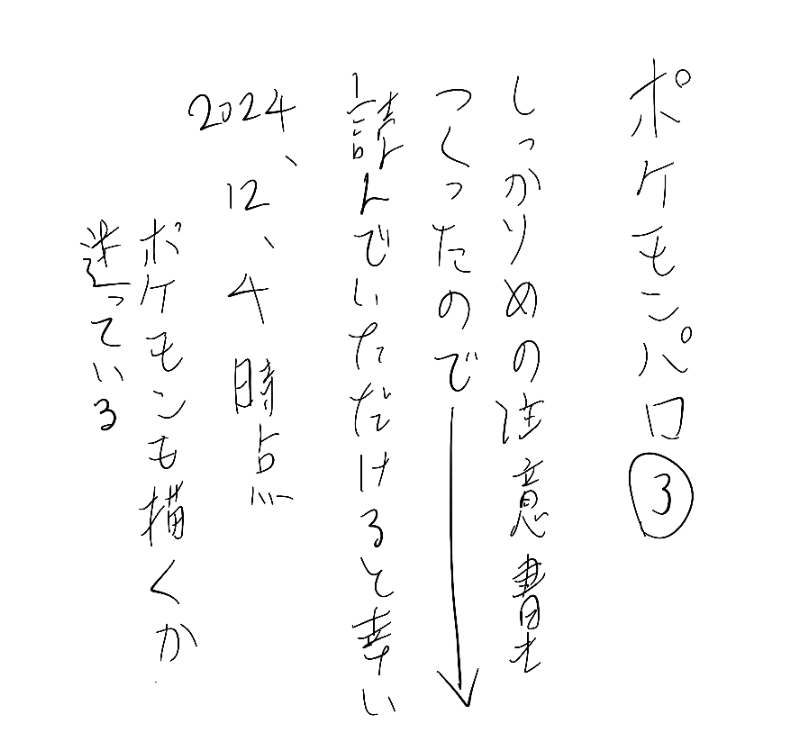 ポケモンパロ③
しっかりめの注意書き
つくったので↓
読んでいただけると幸い
2024、12、4時点
ポケモンも描くか
迷っている